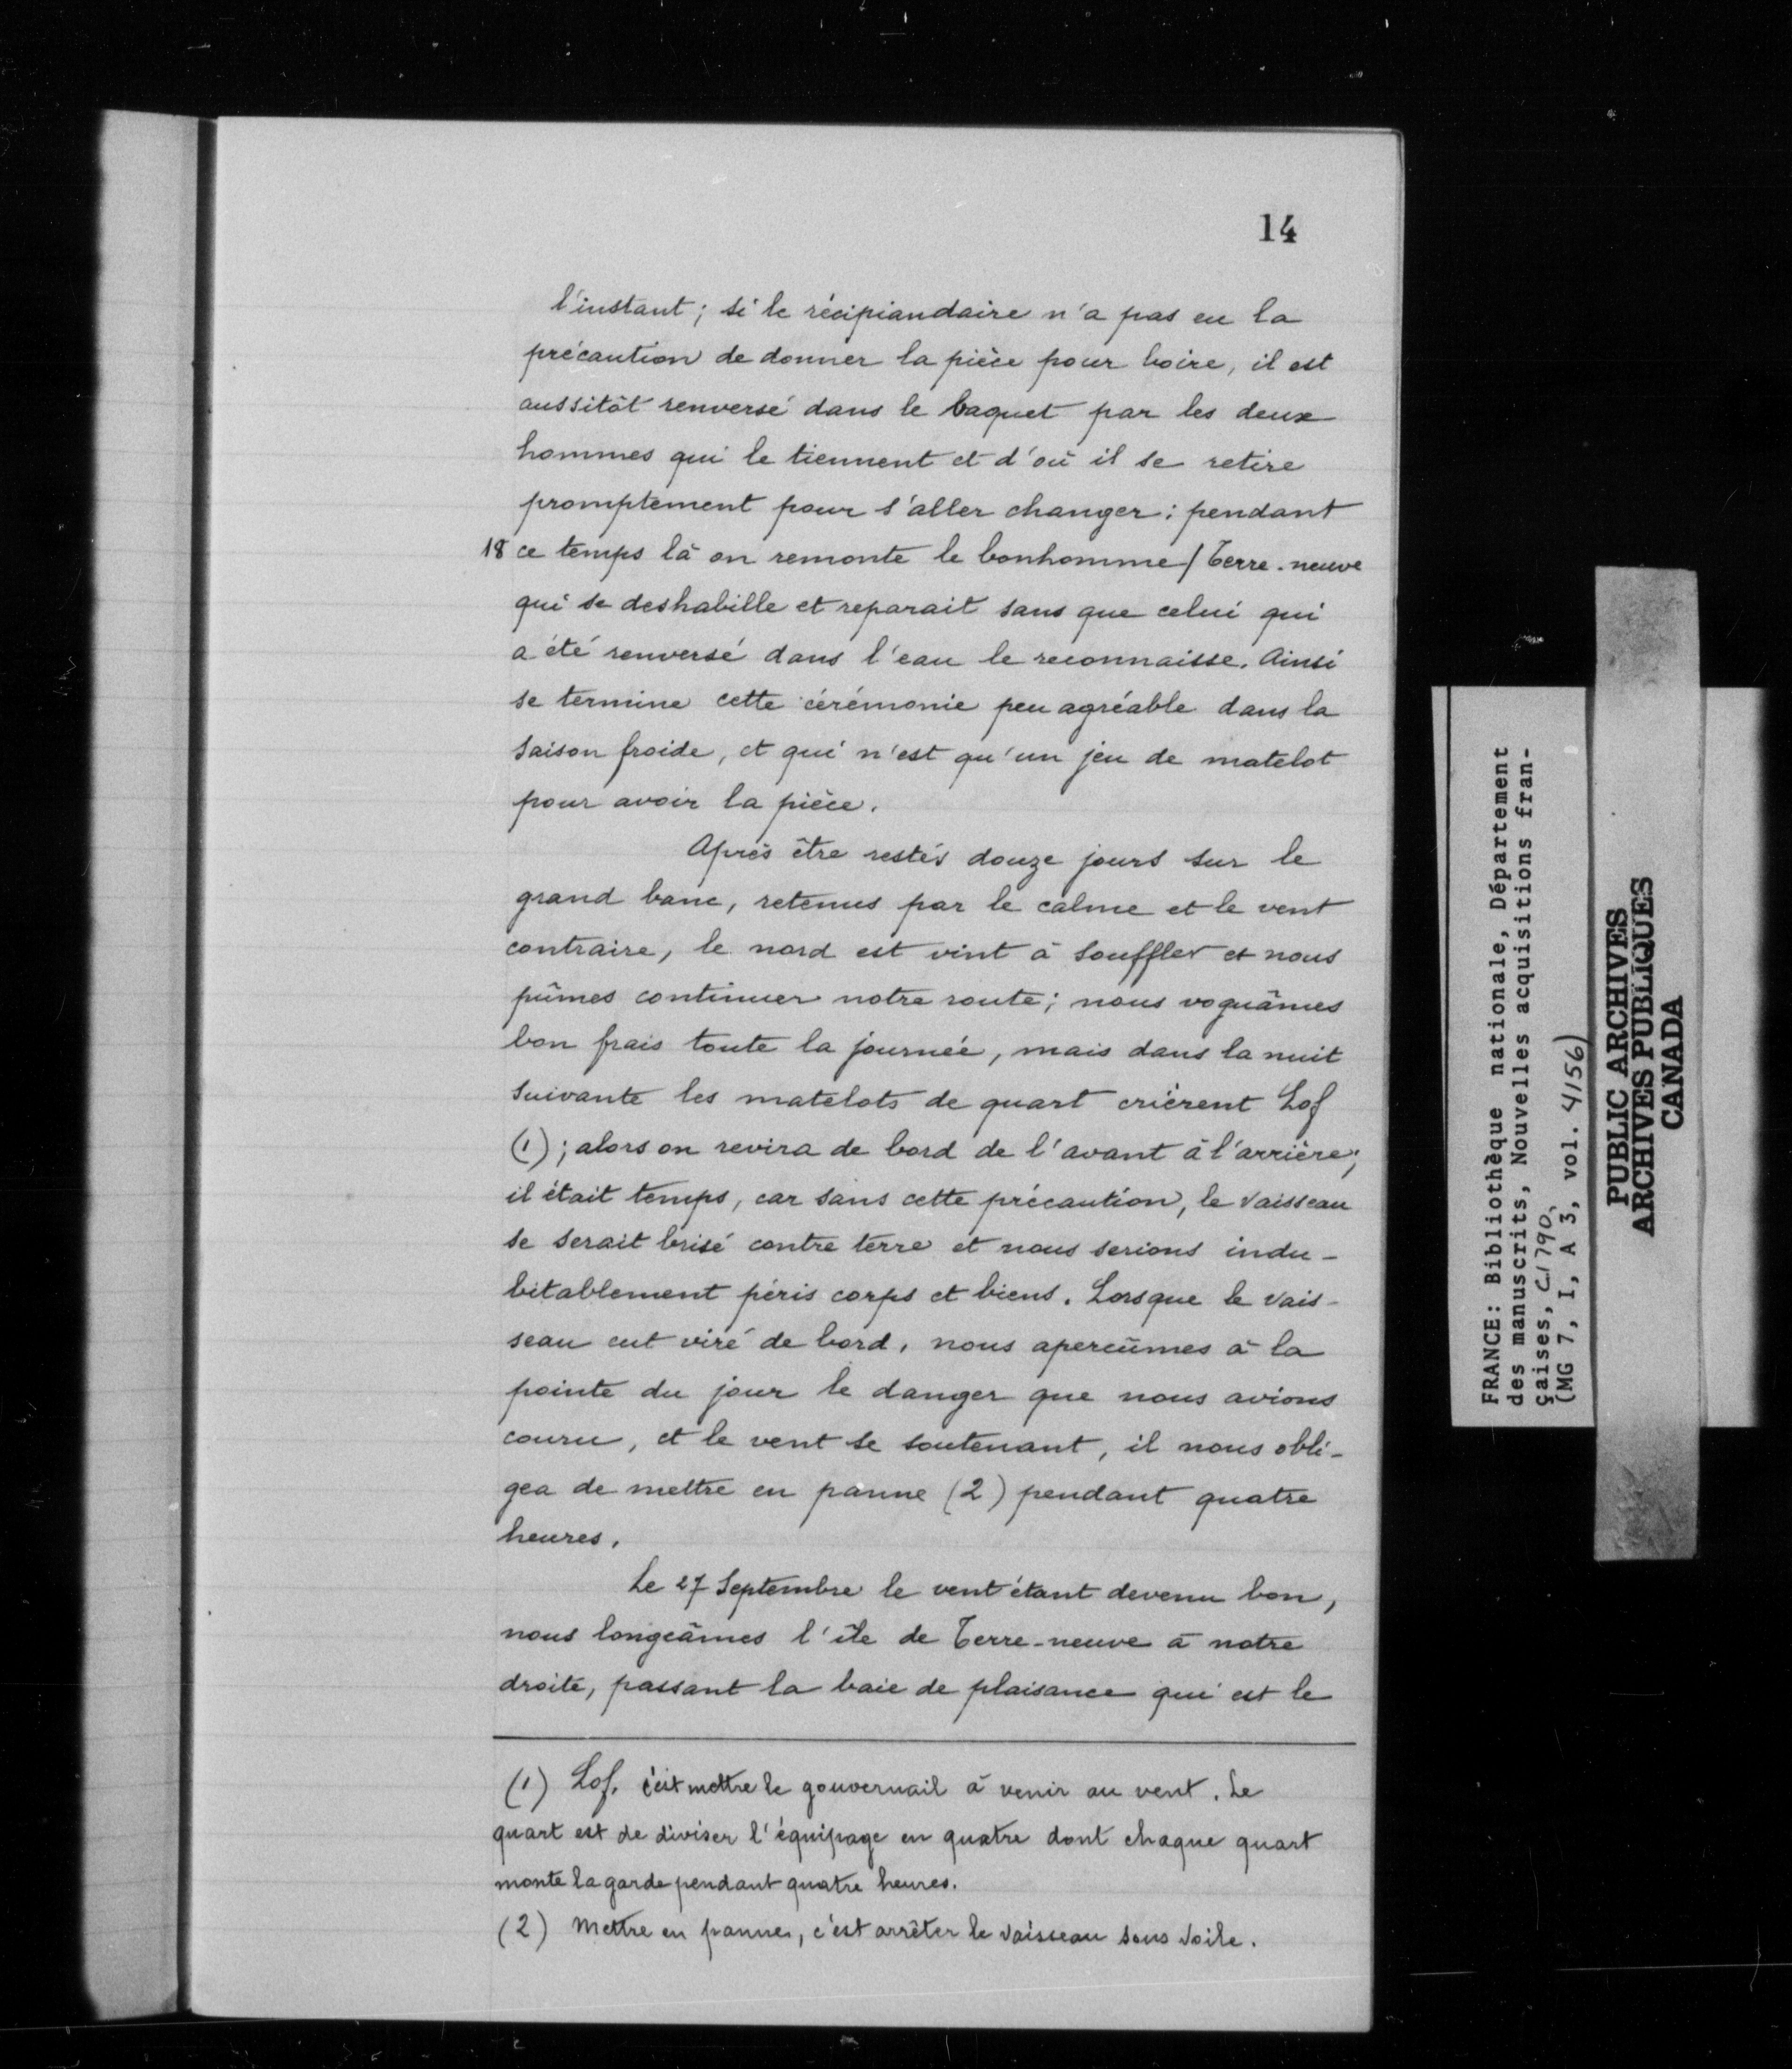 14
l'instant; si le récipiandaire n'a pas eu la
précaution de donner la pièce pour boire, il est
aussitôt renversé dans le baquet par les deux
hommes qui le tiennent et d'où il se retire
promptement pour s'aller changer: pendant
18 ce temps là on remonte le bonhomme / Terre-neuve
qui se deshabille et reparait sans que celui qui
a été renversé dans l'eau le reconnaisse. Ainsi
se termine cette cérémonie peu agréable dans la
saison froide, et qui n'est qu'un jeu de matelot
pour avoir la pièce.
Après être restés douze jours sur le
grand banc, retenus par le calme et le vent
contraire, le nord est vint à souffler et nous
pûmes continuer notre route; nous voguâmes
bon frais toute la journée, mais dans la nuit
suivante les matelots de quart crièrent Lof
(1); alors on revira de bord de l'avant à l'arrière;
il était temps, car sans cette précaution, le vaisseau
se serait brisé contre terre et nous serions indu-
bitablement péris corps et biens. Lorsque le vais-
seau eut viré de bord, nous apercûmes à la
pointe du jour le danger que nous avions
couru, et le vent se soutenant, il nous obli-
gea de mettre en panne (2) pendant quatre
heures.
Le 27 Septembre le vent étant devenu bon,
nous longeâmes l'île de Terre-neuve à notre
droite, passant la baie de plaisance qui est le
(1) Lof. c'est mettre le gouvernail à venir au vent. Le
quart est de diviser l'équipage en quatre dont chaque quart
monte la garde pendant quatre heures.
(2) Mettre en panne, c'est arrêter le vaisseau sous voile.
FRANCE: Bibliothèque nationale, Département
des manuscrits, Nouvelles acquisitions fran-
çaises,
(MG 7, I, A 3, vol. 4156)
PUBLIC ARCHIVES
ARCHIVES PUBLIQUES
CANADA